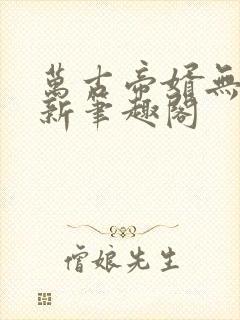 萬古帝婿無
新筆趣閣
僧娘先生